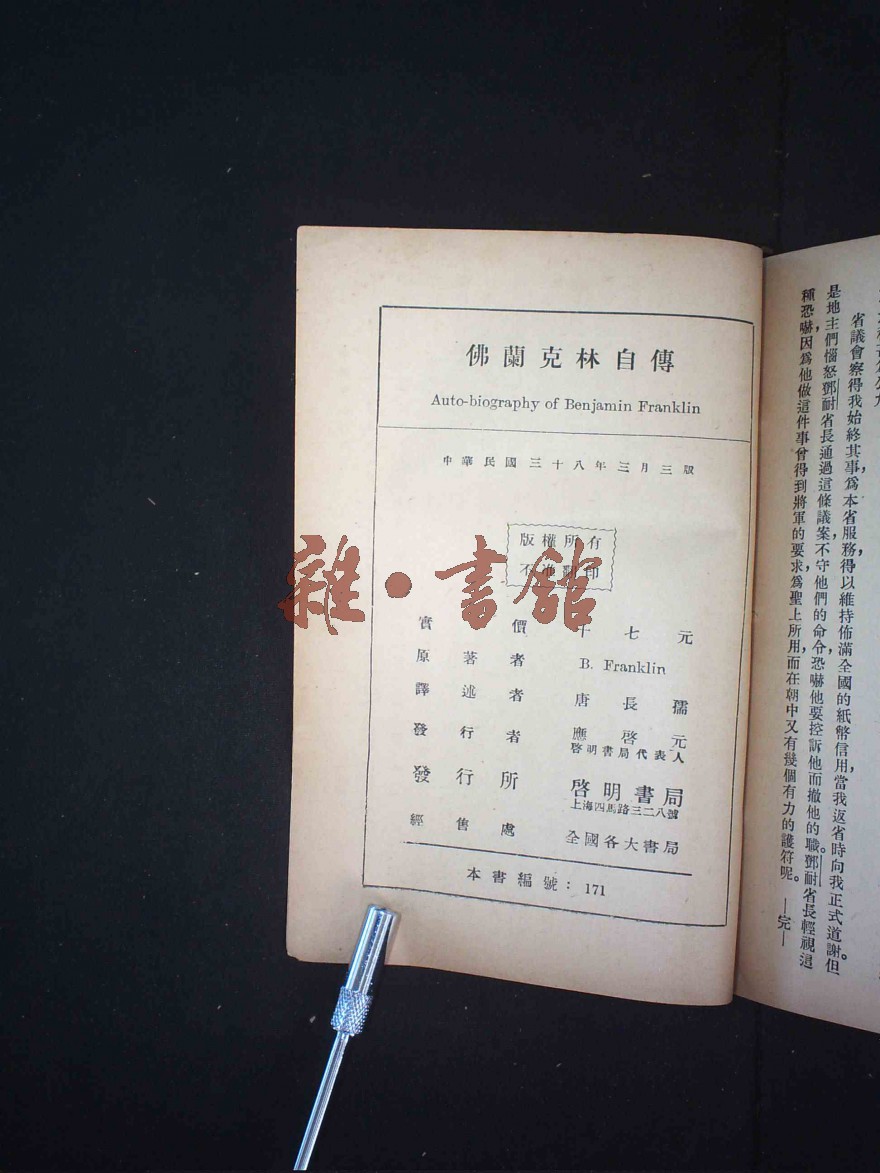 佛蘭克林自傳
Auto-biography of Benjamin Franklin
中華民國三十八年三月三版
版權所有
不准翻印
實價 十七元
原著者 B. Franklin
譯述者 唐長孺
發行者 應啓元
啓明書局代表人
發行所 啓明書局
上海四馬路三二八號
經售處 全國各大書局
本書編號：171
雜·書館
省議會察得我始終其事，爲本省服務，得以維持佈滿全國的紙幣信用，當我返省時向我正式道謝。但
是地主們惱怒鄧耐省長通過這條議案，不守他們的命令，恐嚇他要控訴他而撤他的職。鄧耐省長輕視這
種恐嚇，因爲他做這件事曾得到將軍的要求，爲聖上所用，而在朝中又有幾個有力的護符呢。 —完—